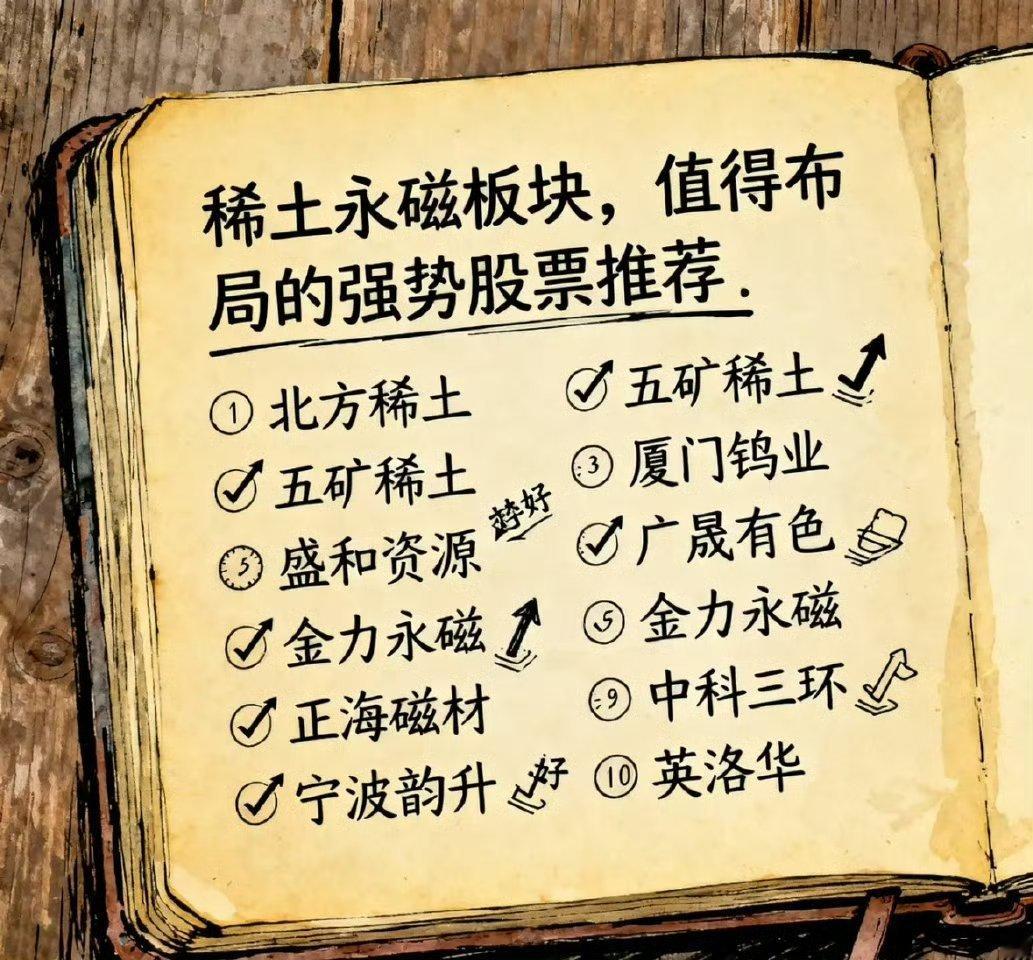 稀土永磁板块，值得布
局的强势股票推荐.
① 北方稀土
五矿稀土
⑤ 盛和资源
金力永磁
正海磁材
宁波韵升 好
五矿稀土
③ 厦门钨业
广晟有色
⑤ 金力永磁
⑨ 中科三环
⑩ 英洛华